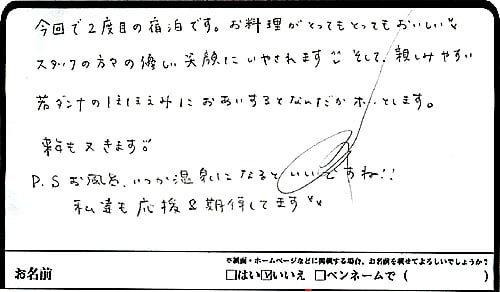 今回で2度目の宿泊です。お料理がとってもとってもおいしい
スタッフの方々の優しい笑顔にいやされます そして、親しみやすい
若ダンナのほほえみにおあいするとなんだかホッとします。
来年も又きます
P.S お風呂、いつか温泉になるといいですね!!
私達も応援&期待してます
※紙面・ホームページなどに掲載する場合、お名前を載せてよろしいでしょうか?
お名前 □はい ☑いいえ □ペンネームで ( )